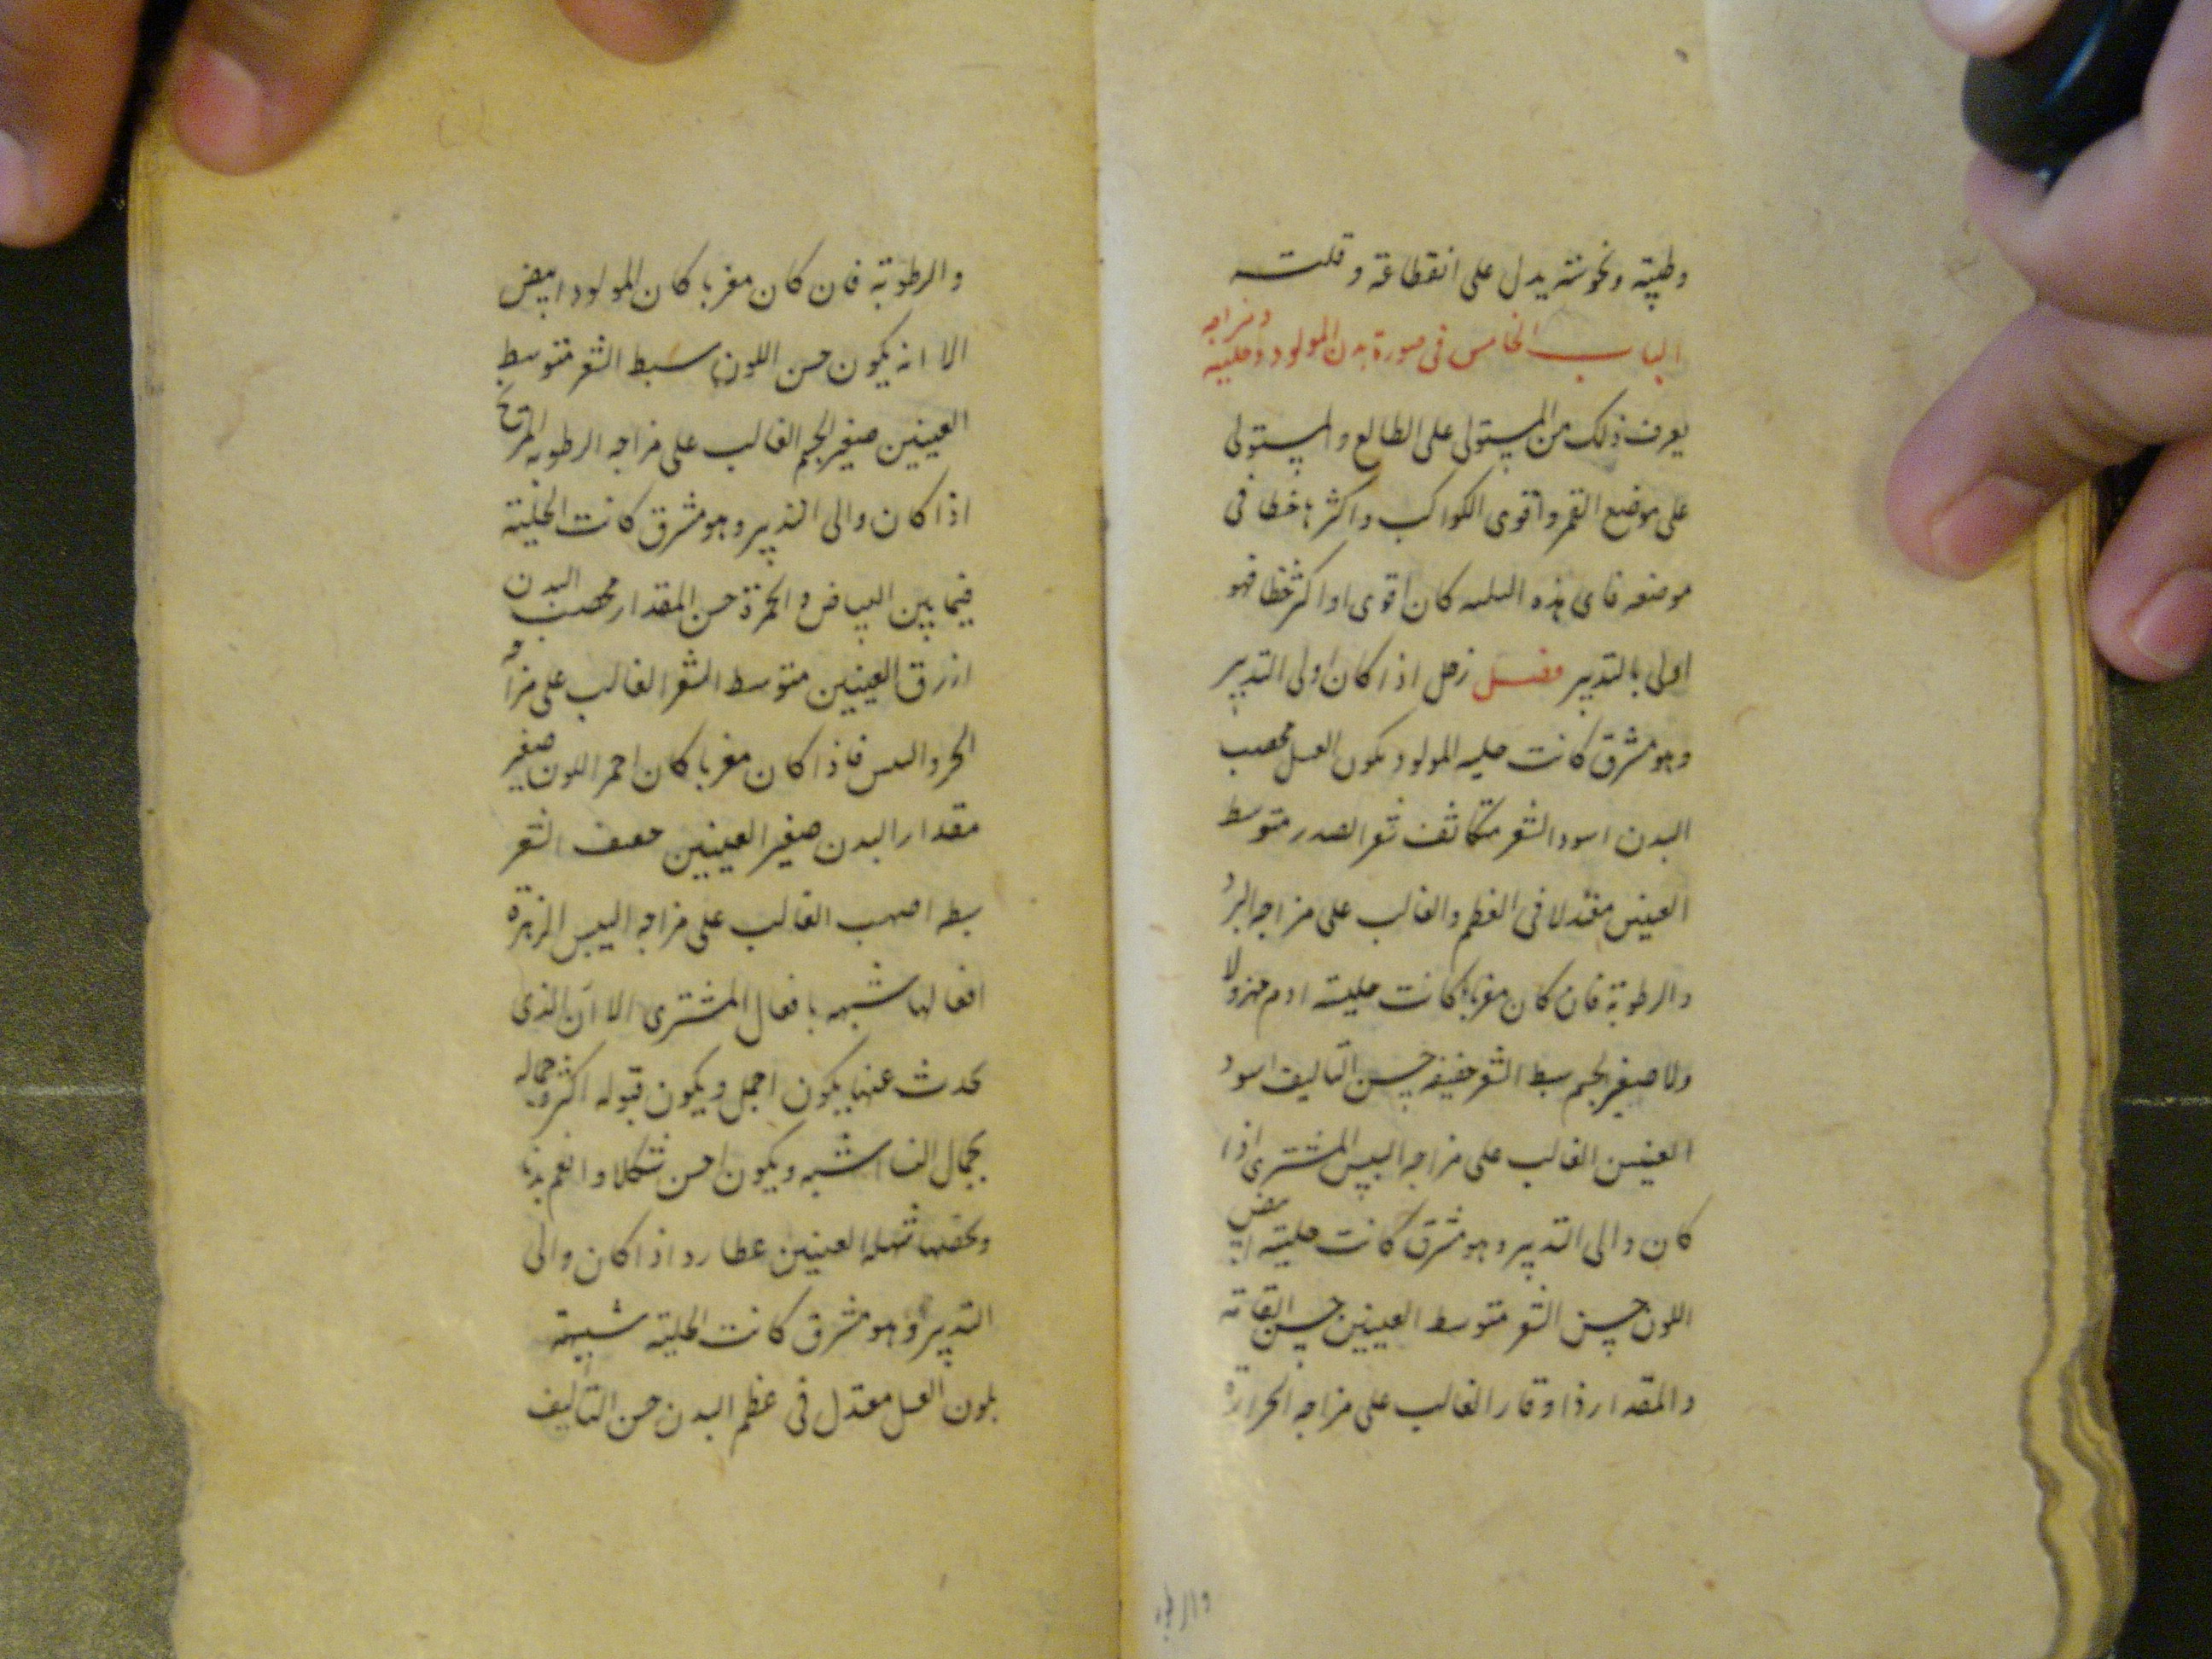 وطيبته ونحوسته يدل على انقطاعه وقلته
الباب الخامس فى صورة بدن المولود وحليته ومزاجه
يعرف ذلك من المستولى على الطالع والمستولى
على موضع القمر واقوى الكواكب واكثرها حظا فى
موضعه فاى هذه الثلثه كان اقوى او اكثر حظا فهو
اولى بالتدبير فصل زحل اذا كان ولى التدبير
وهو مشرق كانت حليه المولود بلون العسل مخصب
البدن اسود الشعر متكاثف شعر الصدر متوسط
العينين معتدلا فى العظم والغالب على مزاجه البرد
والرطوبة فان كان مغربا كانت حليته ادم مهزولا
ولا صغير الجسم سبط الشعر خفيفه حسن التاليف اسود
العينين الغالب على مزاجه اليبس المشترى اذا
كان والى التدبير وهو مشرق كانت حليته ابيض
اللون حسن الشعر متوسط العينين حسن القامة
والمقدار ذا وقار الغالب على مزاجه الحرارة
والرطوبة
والرطوبة فان كان مغربا كان المولود ابيض
الا انه يكون حسن اللون سبط الشعر متوسط
العينين صغير الجسم الغالب على مزاجه الرطوبه المريخ
اذا كان والى التدبير وهو مشرق كانت الحلية
فيما بين البياض والحمرة حسن المقدار مخصب البدن
ازرق العينين متوسط الشعر الغالب على مزاجه
الحر واليبس فاذا كان مغربا كان احمر اللون صغير
مقدار البدن صغير العينين خفيف الشعر
سبطه اصهب الغالب على مزاجه اليبس الزهرة
افعالها شبيه بافعال المشترى الا ان الذى
يحدث عنها يكون اجمل ويكون قبوله اكثر وجماله
بجمال النسا اشبه ويكون احسن شكلا وانعم بدنا
ويخصها شهله العينين عطارد اذا كان والى
التدبير وهو مشرق كانت الحلية شبيهة
بلون العسل معتدل فى عظم البدن حسن التأليف